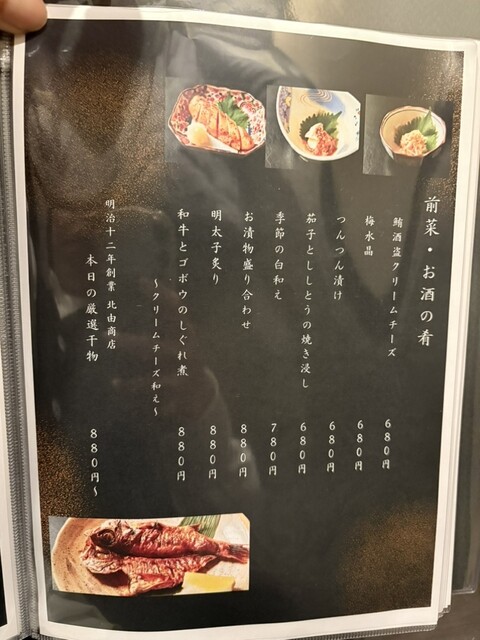 前菜・お酒の肴
鮪酒盗クリームチーズ 680円
梅水晶 680円
つんつん漬け 680円
茄子とししとうの焼き浸し 680円
季節の白和え 780円
お漬物盛り合わせ 880円
明太子炙り 880円
和牛とゴボウのしぐれ煮 880円
～クリームチーズ和え～
明治十二年創業 北由商店
本日の厳選干物 880円～